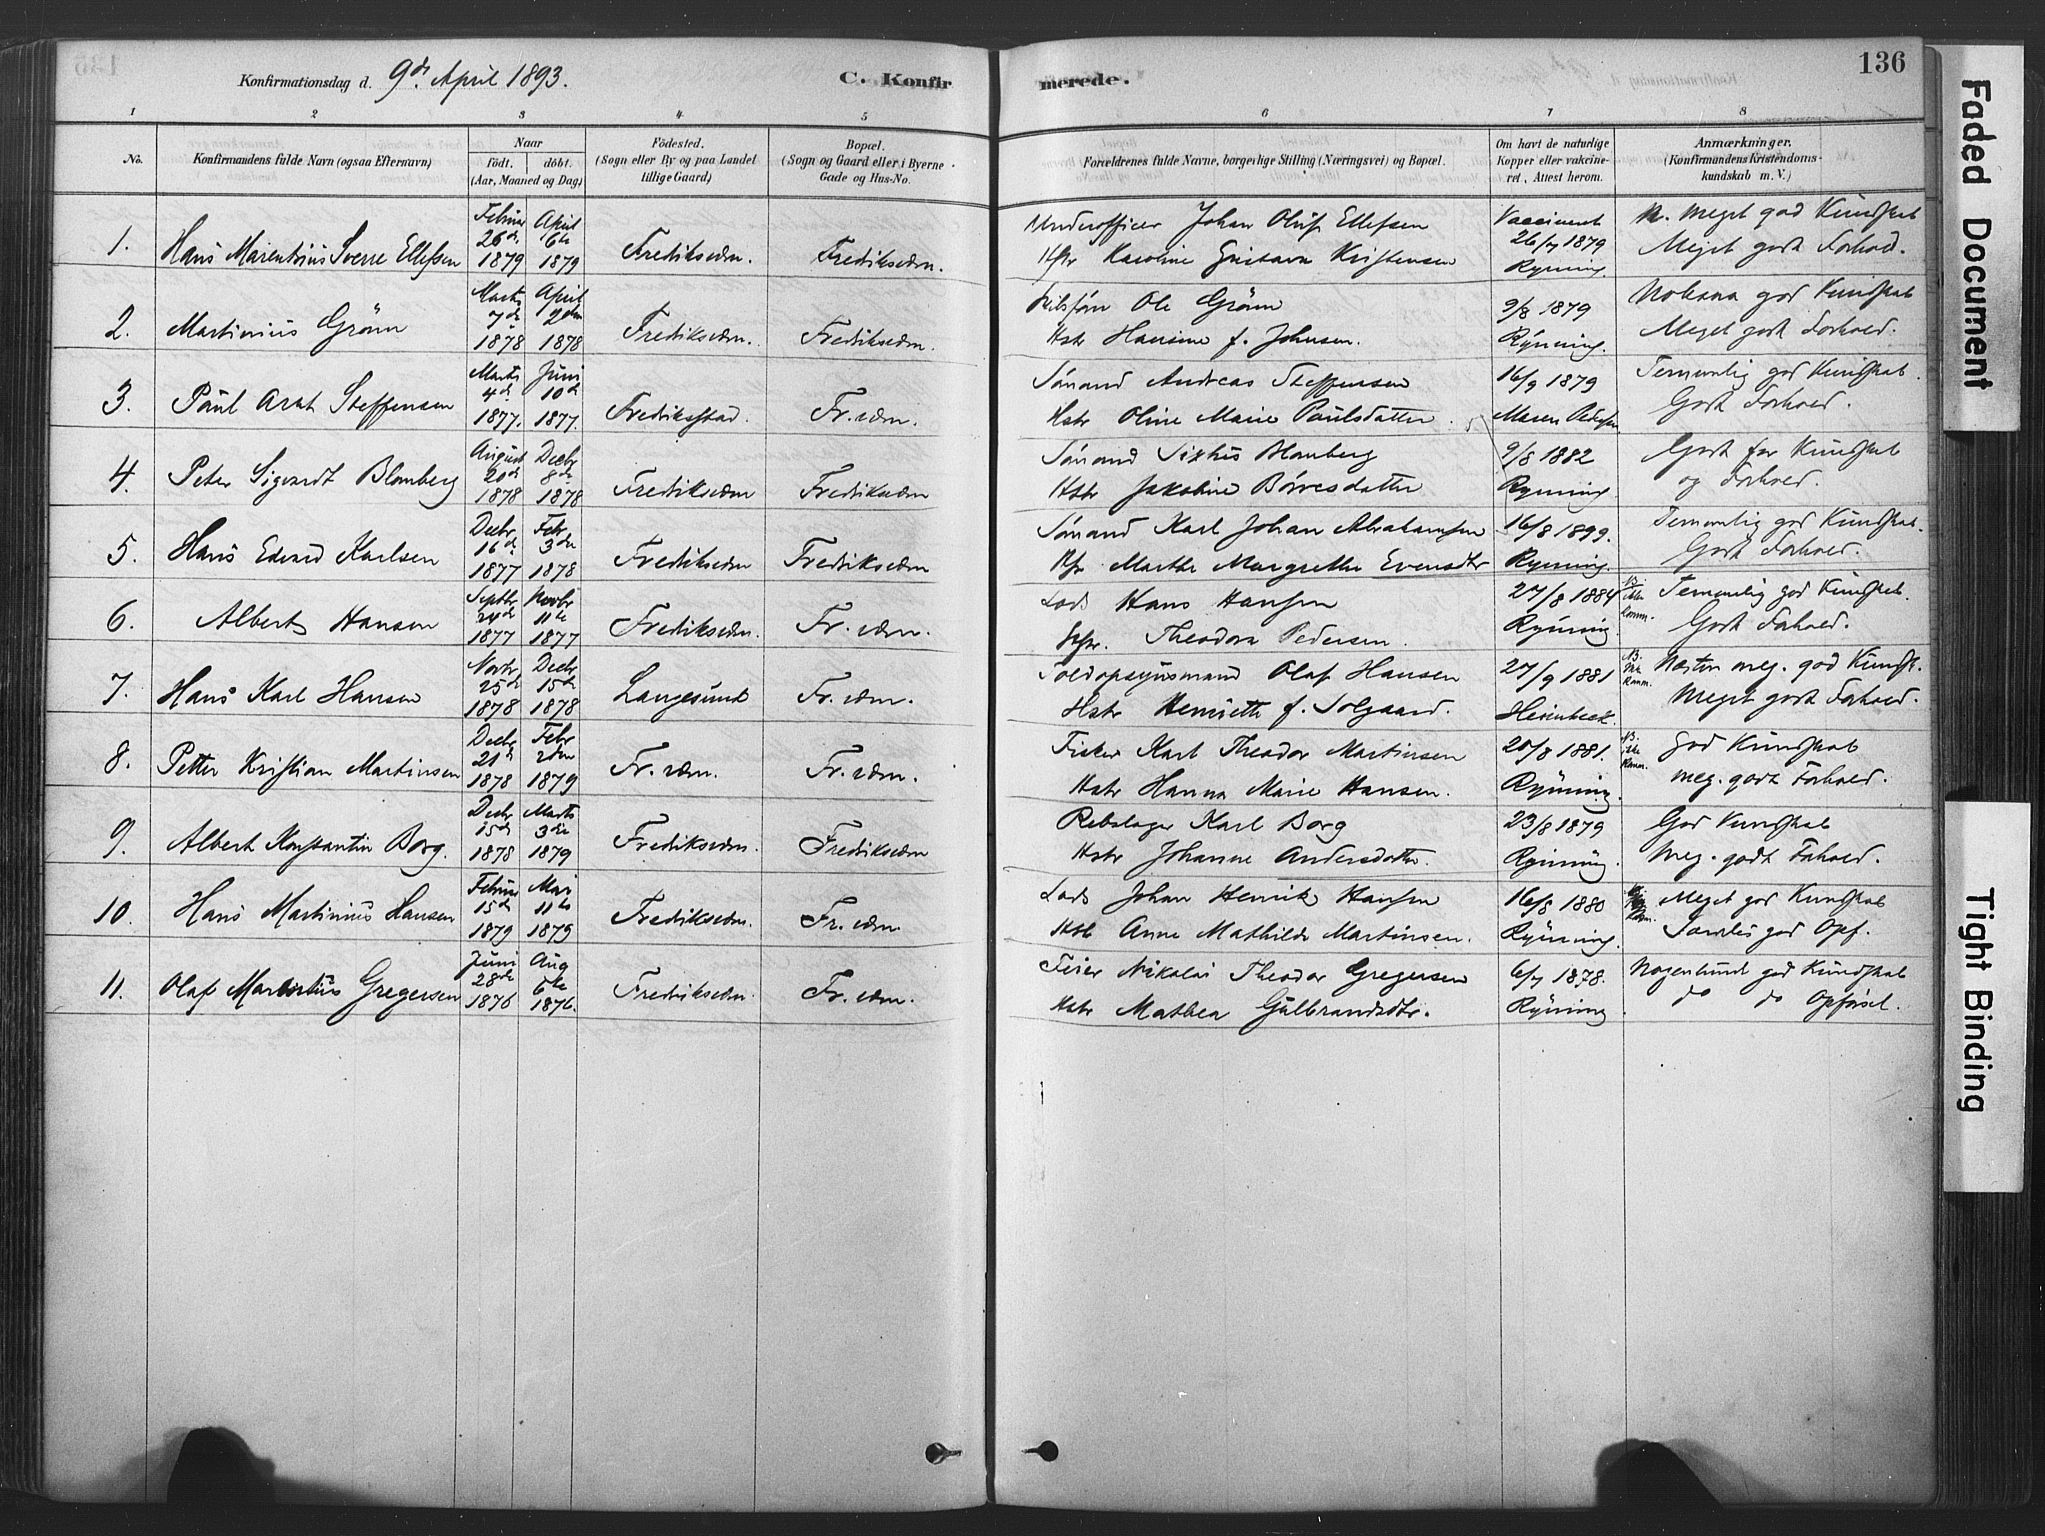 136
Konfirmationsdag d. 9de April 1893.
C. Konfirmerede.
1 2 3 4 5 6 7 8
No.
Konfirmandens fulde Navn (ogsaa Efternavn)
Naar
født. døbt.
(Aar, Maaned og Dag)
Fødested.
(Sogn eller By og paa Landet
tillige Gaard)
Bopæl.
(Sogn og Gaard eller i Byerne
Gade og Hus-No.
Forældrenes fulde Navne, borgerlige Stilling (Næringsvei) og Bopæl.
Om havt de naturlige
Kopper eller vakcine-
ret, Attest herom.
Anmærkninger.
(Konfirmandens Kristendoms-
kundskab m. V.)
1. Hans Marentius Sverre Ellefsen
Februar 26de 1879
April 6te 1879
Frediksværn.
Frediksværn.
Underofficer Johan Oluf Ellefsen
Hstr Karoline Gustava Kristensen
Vaccineret
26/7 1879
Rynning
M. Meget god Kundskab
Meget godt Forhold.
2. Martinius Grønn
Marts 7de 1878
April 2den 1878
Frediksværn.
Frediksværn.
Ole Grønn
Hstr Hansine f. Johnsen.
9/8 1879
Rynning.
god Kundskab
Meget godt Forhold.
3. Paul Arnt Steffensen
Marts 4de 1877.
Juni 10de 1877.
Frediksstad.
Fr.værn.
Sømand Andreas Steffensen
Hstr Oline Marie Paulsdatter.
16/9 1879
Maren Pedersen
Temmelig god Kundskab.
Godt Forhold.
4. Peter Sigvardt Blomberg
August 20de 1878
Decbr 8de 1878
Frediksværn
Frediksværn
Sømand Sixtus Blomberg
Hstr Jakobine Börresdatter
9/8 1882
Rynning.
Godt for Kundskab
og Forhold.
5. Hans Edvard Karlsen
Decbr 16de 1877
Febr 3die 1878
Frediksværn
Frediksværn
Sømand Karl Johan Abrahamsen
Marthe Margrethe Evensdtr
16/8 1899.
Rynning.
Temmelig god Kundskab.
Godt Forhold.
6. Albert Hansen
Septbr 24de 1877
Novbr 11te 1877
Frediksværn.
Fr.værn.
Lods Hans Hansen
Theodora Pedersen.
27/8 1884
Rynning.
NB. ikke Komm.
Temmelig god Kundskab.
Godt Forhold.
7. Hans Karl Hansen
Novbr 25de 1878
Decbr 15de 1878
Langesund
Fr.værn.
Toldopsynsmand Olaf Hansen
Hstr Henriette f. Solgaard.
27/9 1881
NB. ikke Komm.
Næsten meg. god Kundsk.
Meget godt Forhold.
8. Petter Kristian Martinsen
Decbr 21de 1878
Febr 2den 1879
Fr.værn.
Fr.værn.
Fisker Karl Theodor Martinsen
Hstr Hanna Marie Hansen.
20/8 1881.
Rynning.
NB. ikke Komm.
god Kundskab
meg. godt Forhold.
9. Albert Konstantin Borg.
Decbr 15de 1878
Marts 3die 1879
Frediksværn.
Frediksværn
Rebslager Karl Borg
Hstr Johanne Andersdatter.
23/8 1879
Rynning.
God Kundskab
Meg. godt Forhold.
10. Hans Martinius Hansen
Februar 15de 1879
Mai 11te 1879
Frediksværn.
Fr.værn.
Lods Johan Henrik Hansen
Anne Mathilde Martinsen.
16/8 1880
Rynning.
Komm.
Meget god Kundskab
Særdeles god Opf.
11. Olaf Marentius Gregersen
Juni 28de 1876
Aug 6te 1876.
Frediksværn.
Fr.værn.
Feier Nikolai Theodor Gregersen
Hstr Mathea Gulbrandsdtr.
6/7 1878.
Rynning
Nogenlunde god Kundskab
do do Opførsel.
Faded Document
Tight Binding